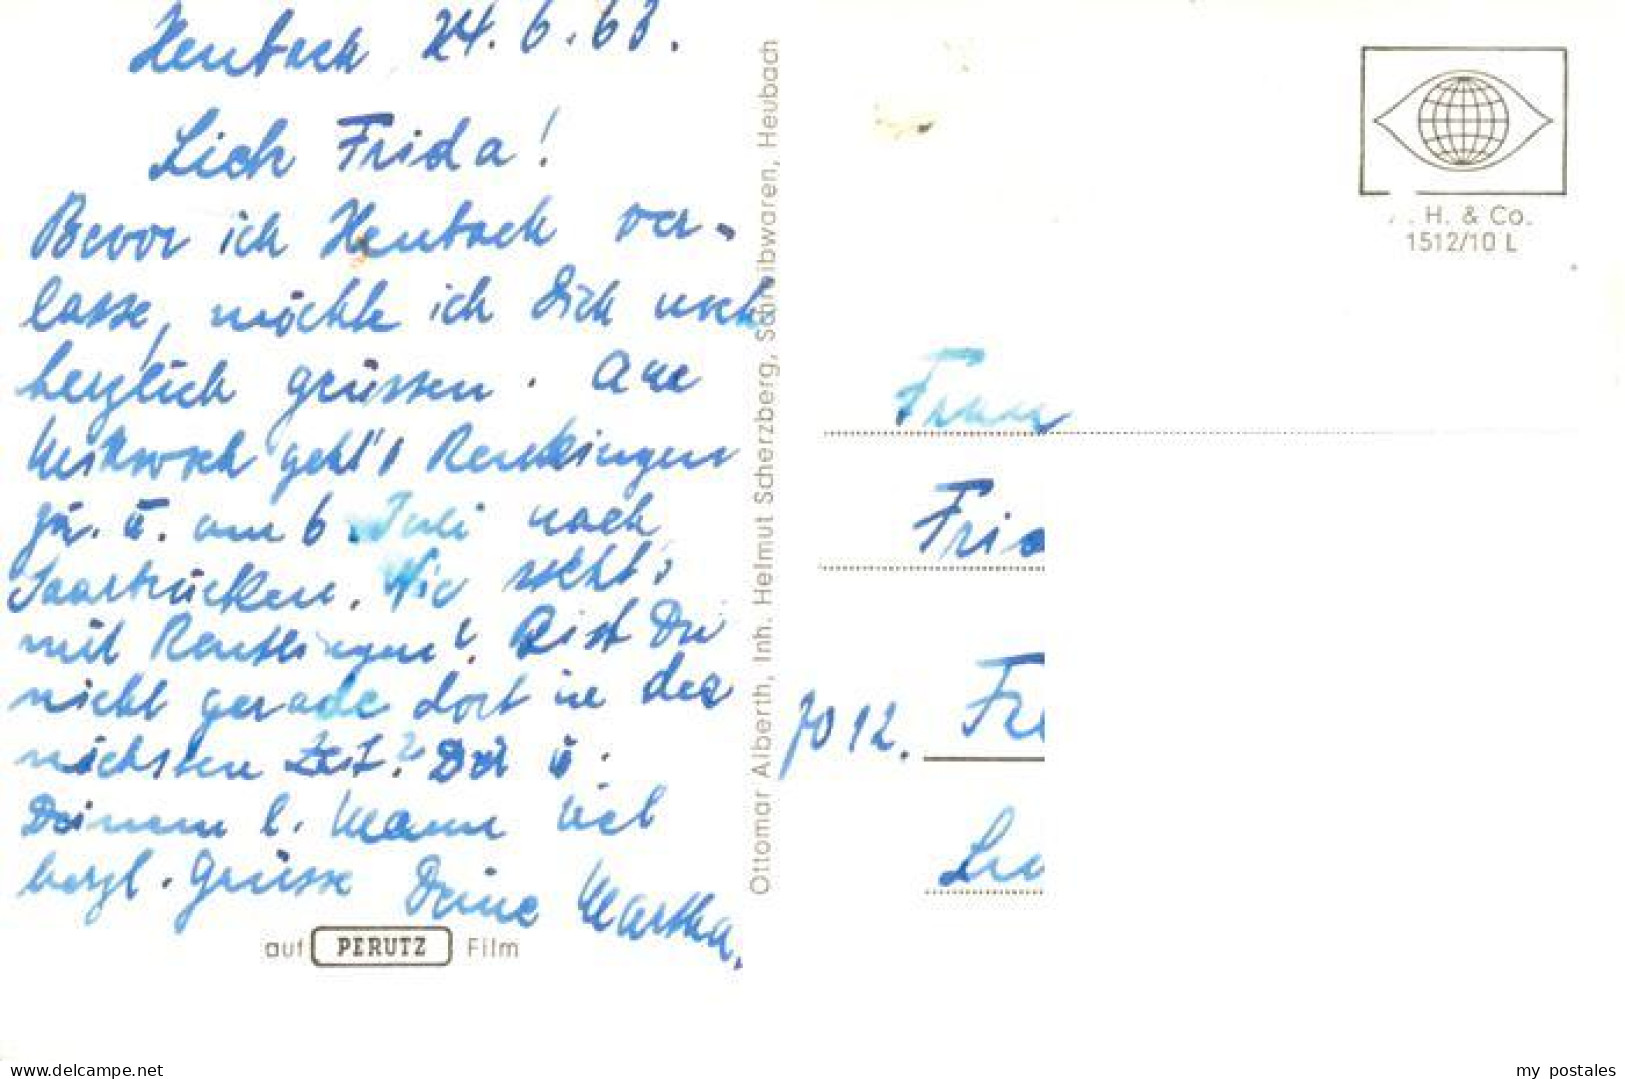 Heubach 24.6.63.
Lieb Frida!
Bevor ich Heubach ver-
lasse, möchte ich Dich noch
herzlich grüssen. Am
Mittwoch geht's Reutlingen
zu. u. am 6 Juli nach
Saarbrücken. Wie steht's
mit Reutlingen? Bist Du
nicht gerade dort in der
nächsten Zeit? Dir u.
Deinem l. Mann viel
herzl. Grüsse Deine Martha.
auf PERUTZ Film
Ottomar Alberth, Inh. Helmut Scherzberg, Schreibwaren, Heubach
H. & Co.
1512/10 L
Frau
Frid
7012. Fe
delcampe.net
my_postales